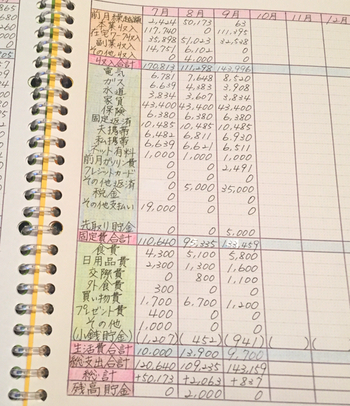 7月 8月 9月 10月 11月 12月
前月繰越額 2,424 50,173 63
本業収入 117,740 0 111,395
在宅ワーク収入 35,898 51,023 32,538
副業収入 14,751 6,102 0
その他収入 0 4,000 0
収入合計 170,813 111,298 143,996
電気 6,781 7,648 8,520
ガス 6,639 4,383 3,908
水道 3,834 3,607 3,834
家賃 43,400 43,400 43,400
保険 6,380 6,380 6,380
固定返済 10,485 10,485 10,485
夫携帯 6,482 6,811 6,930
私携帯 6,639 6,621 6,511
ネット有料 1,000 1,000 0
前月ガソリン費 0 0 2,491
クレジットカード 0 0 0
その他返済 0 5,000 35,000
税金 0 0 0
その他支払い 19,000 0 0
先取り貯金 0 0 5,000
固定費合計 110,640 95,335 133,459
食費 4,300 5,100 5,800
日用品費 2,300 1,300 1,600
交際費 0 800 1,100
外食費 300 0 0
買い物費 1,700 6,700 1,200
プレゼント費 400 0 0
その他 1,000 0 0
(小銭貯金) (1,207) (452) (941) ( ) ( )
生活費合計 10,000 13,900 9,700
総支出合計 120,640 109,235 143,159
総計 +50,173 +2,063 +837
残高貯金 0 2,000